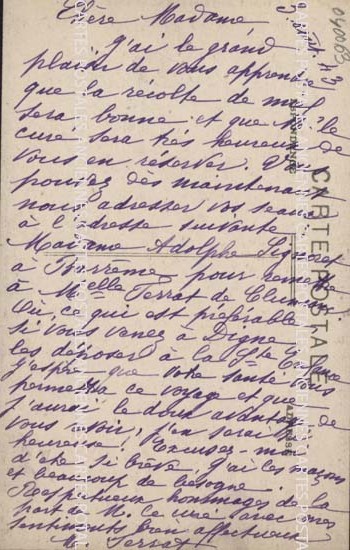 Chère Madame
J'ai le grand
plaisir de vous apprendre
que la récolte de miel
sera bonne et que M. le
curé sera très heureux de
vous en réserver. Vous
pouvez dès maintenant
nous adresser vos seaux
à l'adresse suivante
Madame Adolphe
à Barrême pour remettre
à Melle Terrat de
Ou, ce qui est préférable
si vous venez à Digne
les déposer à la Ste
J'espère que votre santé vous
permettra ce voyage et que
j'aurai le doux avantage de
vous voir, j'en serai si
heureuse! Excusez-moi
d'être si brève, j'ai les maçons
et beaucoup de besogne.
Respectueux hommages de la
part de M. ce curé avec mes
sentiments bien affectueux
M. Terrat
CARTE POSTALE
CORRESPONDANCE
ADRESSE
040063